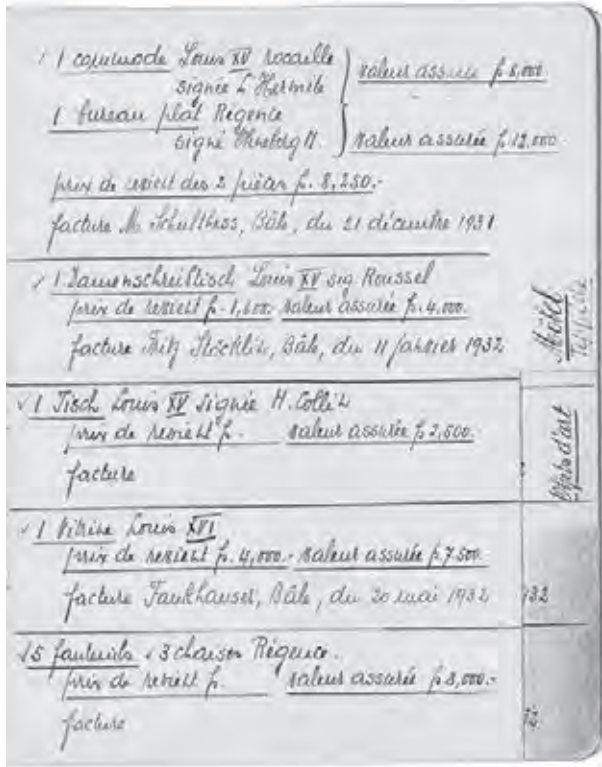 1 commode Louis XV rocaille
signée L'Hermite
valeur assurée fr. 8,000
1 bureau plat Régence
signé H.
valeur assurée fr. 12,000
prix de revient des 2 pièces fr. 8,250.-
facture M. Schulthess, Bâle, du 21 décembre 1931
1 Damenschreibtisch Louis XV sig. Roussel
prix de revient fr. 1,600.- valeur assurée fr. 4,000.
facture Fritz Stöcklin, Bâle, du 11 janvier 1932
1 Tisch Louis XV signée H. Collin
prix de revient fr. valeur assurée fr. 2,500.
facture
1 Vitrine Louis XVI
prix de revient fr. 4,000.- valeur assurée fr. 7,500.
facture Fankhauser, Bâle, du 20 mai 1932
5 fauteuils & 3 chaises Régence.
prix de revient fr. valeur assurée fr. 8,000.-
facture
Objets d'art
32